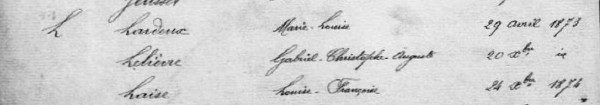 L Lardeux Marie-Louise 29 avril 1873
Lelièvre Gabriel-Christophe-Auguste 20 Xbre
Laise Louise-Françoise 24 Xbre 1874